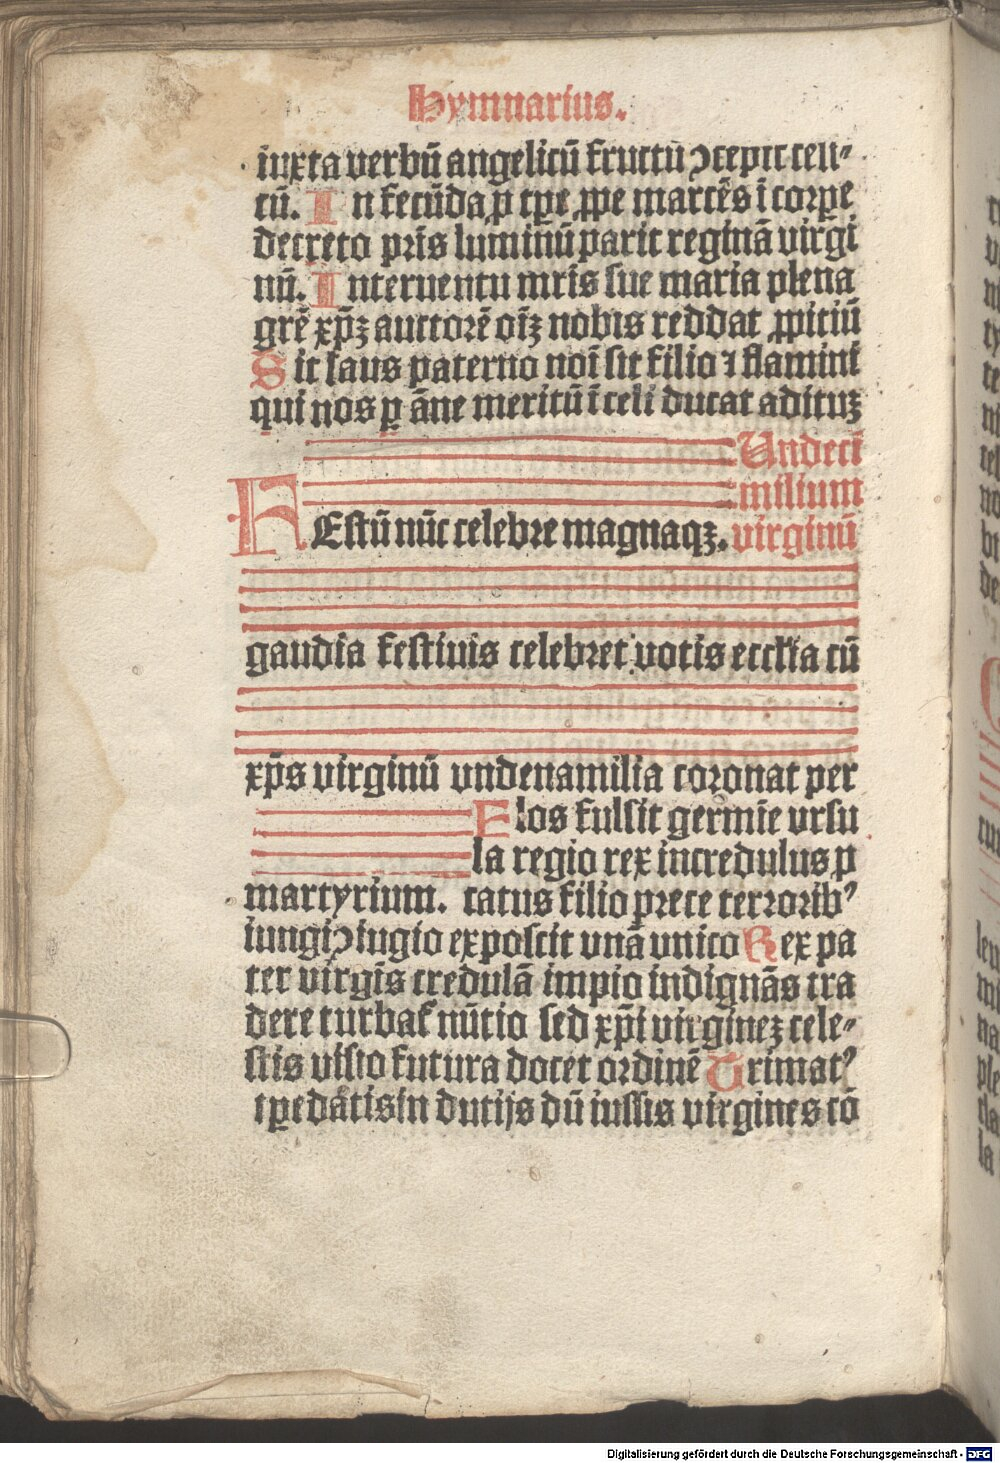 Hymnarius.
iuxta verbū angelicū fructū ꝯcepit celi⸗
cū. In fecūda ꝑ tꝑe ꝓpe marcēs ī corꝑe
decreto pr̄is luminū parit reginā virgi
nū. Interuentu mr̄is sue maria plena
grē xp̄ꝫ auctorē oīꝫ nobis reddat ꝓpitiū
Sit laus paterno noī sit filio ⁊ flamini
qui nos ꝑ āne meritū ī celi ducat adituꝫ
Undeci
milium
FEstū nūc celebre magnaqꝫ. virginū
gaudia festiuis celebret votis eccľia cū
xp̄s virginū vndenamilia coronat per
Flos fulsit germīe vrsu
la regio rex incredulus ꝑ
martyrium. catus filio prece terrorib⁹
iungi ꝯiugio exposcit vnā vnico Rex pa
ter virgīs credulā impio indignās tra
dere turbat᷒ nūtio sed xp̄i virgineꝫ cele⸗
stis visio futura docet ordinē Trimat⁹
tꝑe datis in dutijs dū iussis virgines cō
Digitalisierung gefördert durch die Deutsche Forschungsgemeinschaft - DFG